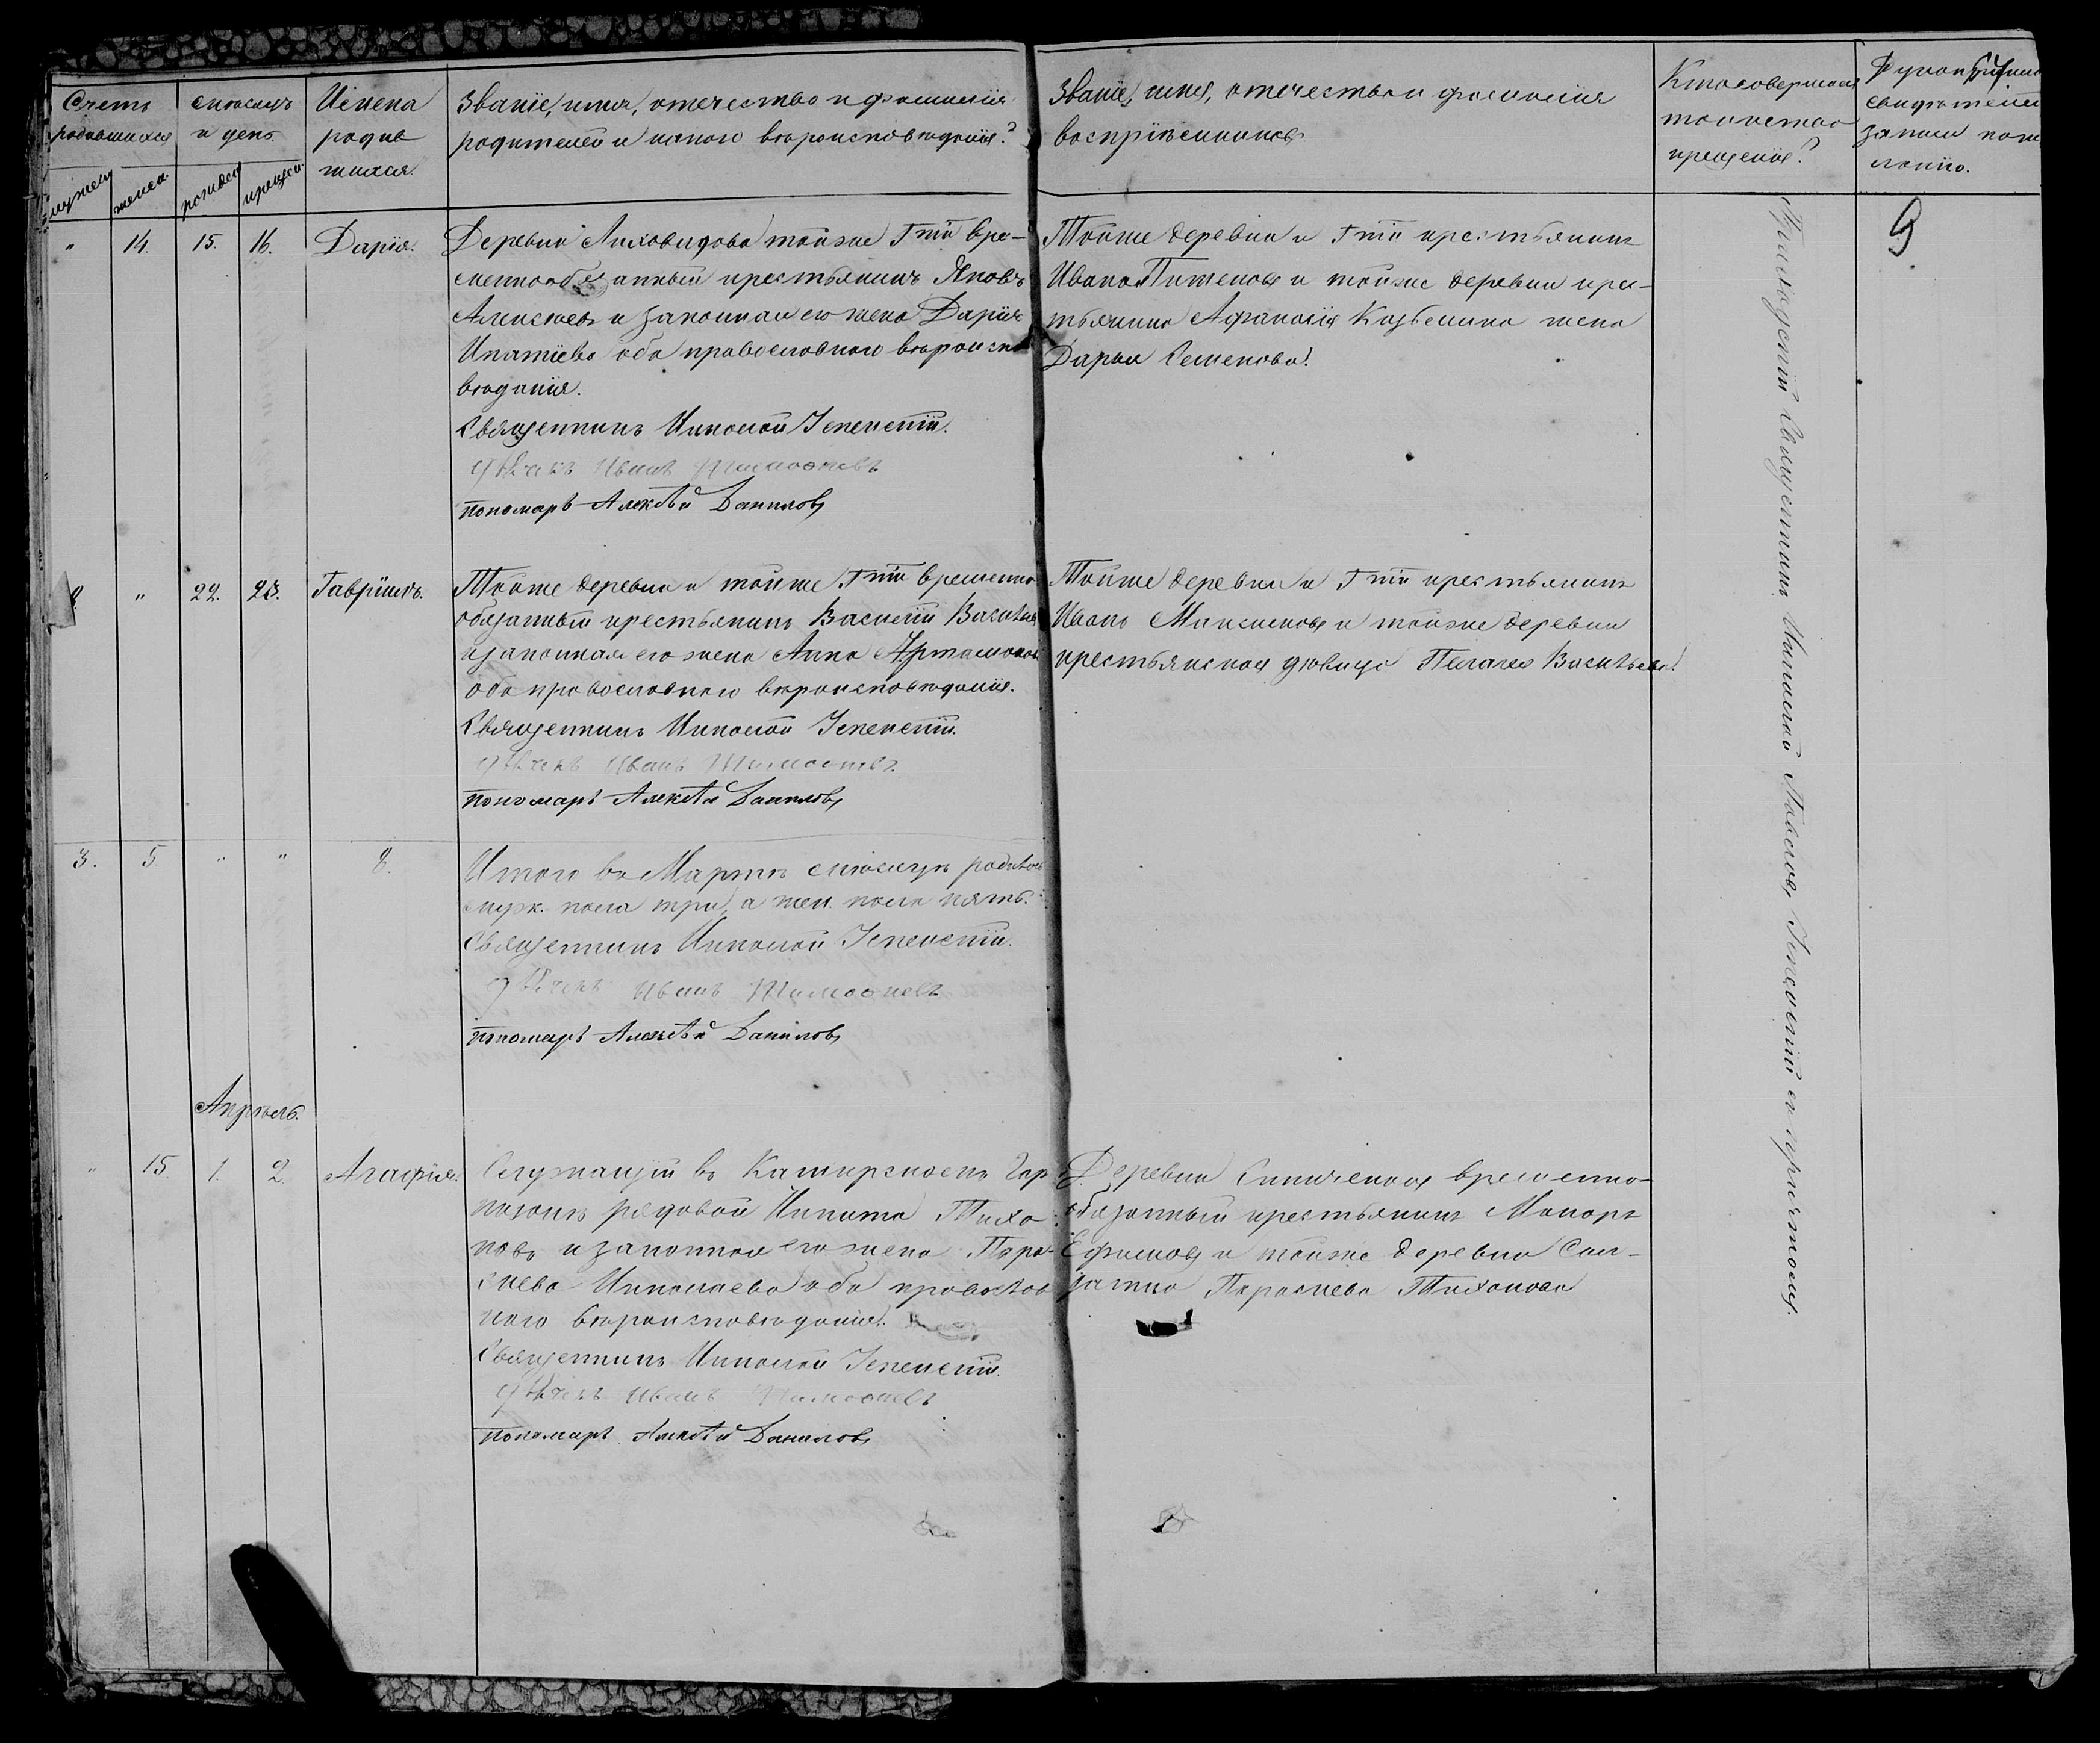 Счетъ родившихся
мужеск. женск.
Мѣсяцъ и день
рожден. крещен.
Имена родив-
шихся.
Званіе, имя, отечество и фамилія
родителей и какого вѣроисповѣданія?
Званіе, имя, отечество и фамилія
воспріемниковъ.
Кто совершалъ
таинство
крещенія?
свидѣтелей
записи по же-
ланію.
9
" 14. 15. 16. Дарія.
Деревни Лиховидова тойже Гжи вре-
меннообязанный крестьянинъ Яковъ
Алексѣевъ и законная его жена Дарія
Ипатіева оба православнаго вѣроиспо-
вѣданія.
Священникъ Николай Успенскій.
дьячекъ Иванъ Тимоѳеевъ
пономарь Алексѣй Даниловъ
Тойже деревни и Гжи крестьянинъ
Иванъ Пименовъ и тойже деревни крес-
тьянина Афанасія жена
Дарья Семенова.
" 22. 23. Гавріилъ.
Тойже деревни и тойже Гжи временно
обязанный крестьянинъ Василій Васильевъ
и законная его жена Анна Артамонова
оба православнаго вѣроисповѣданія.
Священникъ Николай Успенскій.
дьячекъ Иванъ Тимоѳеевъ
пономарь Алексѣй Даниловъ
Тойже деревни и Гжи крестьянинъ
Иванъ Максимовъ и тойже деревни
крестьянская дѣвица Пелагея Васильева.
3. 5 " " 8.
Итого въ Мартѣ мѣсяцѣ родилось
муж. пола три, а жен. пола пять.
Священникъ Николай Успенскій.
дьячекъ Иванъ Тимоѳеевъ
пономарь Алексѣй Даниловъ
Апрѣль.
" 15 1. 2. Агафія.
Служащій въ Каширскомъ Гар-
низонѣ рядовой Никита Тихо-
новъ и законная его жена Парас-
кева Николаева оба православ-
наго вѣроисповѣданія.
Священникъ Николай Успенскій.
дьячекъ Иванъ Тимоѳеевъ
пономарь Алексѣй Даниловъ
Деревни временно-
обязанный крестьянинъ Макаръ
Ефимовъ и тойже деревни Сол-
датка Параскева Тихонова
Приходскій Священникъ Николай Павловъ Успенскій съ причтомъ.